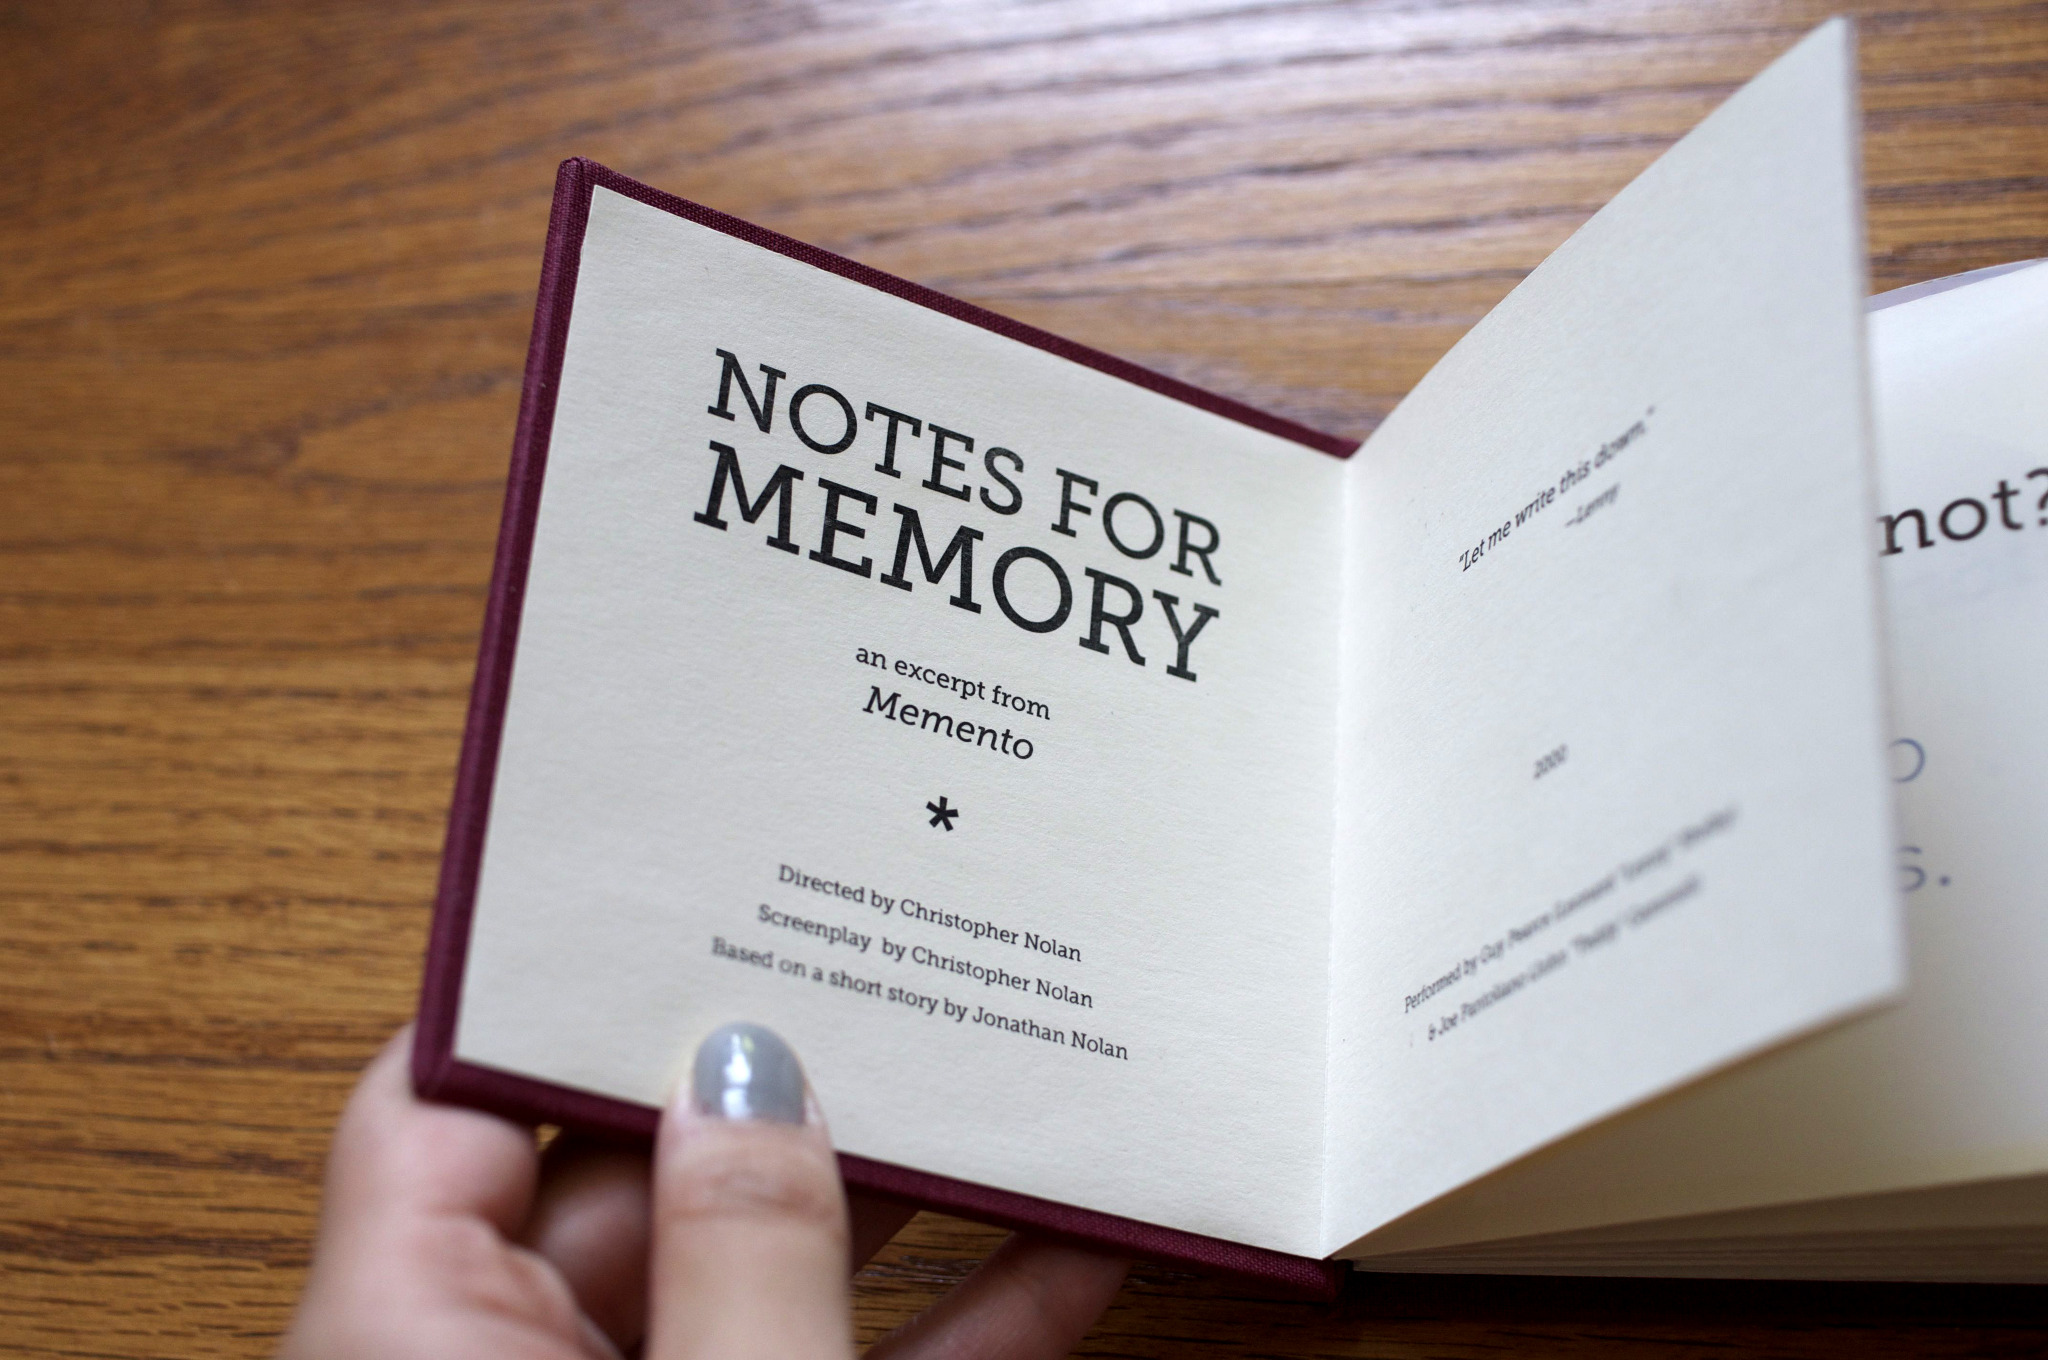 NOTES FOR
MEMORY
an excerpt from
Memento
*
Directed by Christopher Nolan
Screenplay by Christopher Nolan
Based on a short story by Jonathan Nolan
"Let me write this down."
–Lenny
2000
Performed by Guy Pearce Leonard "Lenny" Shelby
& Joe Pantoliano (John "Teddy" Gammell)
not?
o
s.